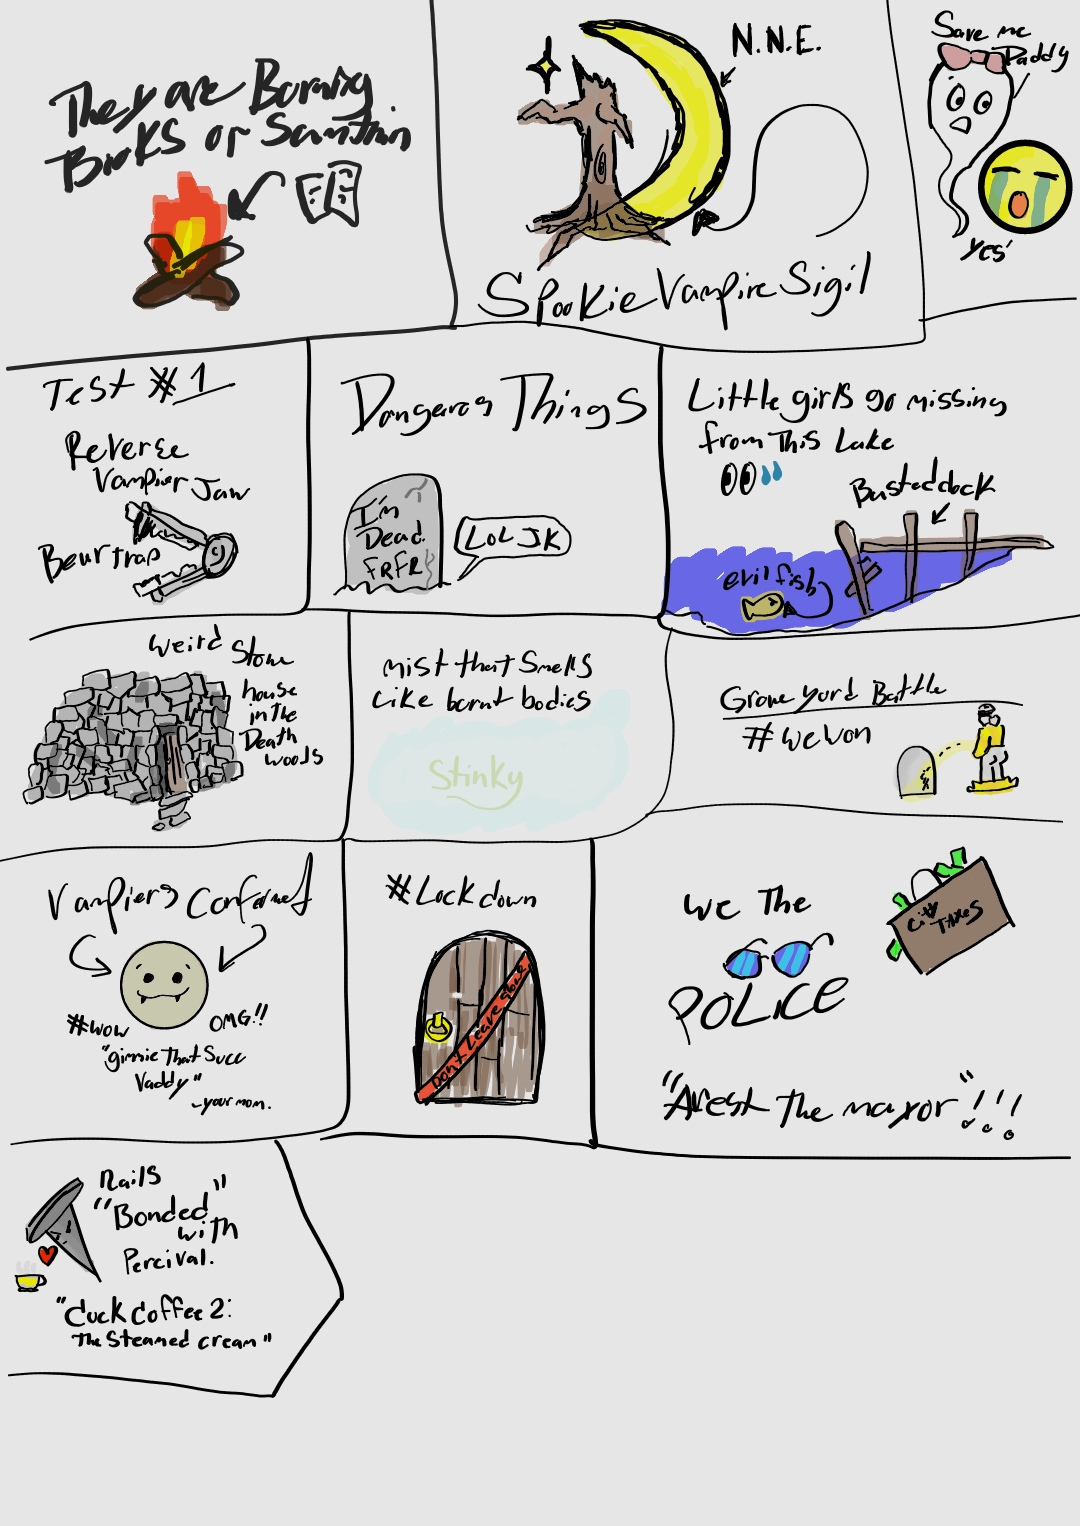 They are Burning
Books or Somthin
N.N.E.
Spookie Vampire Sigil
Save me
Daddy
Yes'
Test #1
Reverse
Vampier Jaw
Bear trap
Dangeros Things
I'm
Dead.
FRFR
LOL JK
Little girls go missing
from This Lake
Busted dock
evil fish
Weird Stone
house
in the
Death
woods
mist that smells
Like burnt bodies
Stinky
Grave yard Battle
#we won
Vampiers Confirmed
#wow
OMG!!
"gimmie That Succ
Vaddy"
-your mom.
#Lockdown
Dont Leave
We The
POLICE
City
Taxes
"Arest The mayor"!!!
Nails
"Bonded"
with
Percival.
"Cuck Coffee 2:
The Steamed cream"